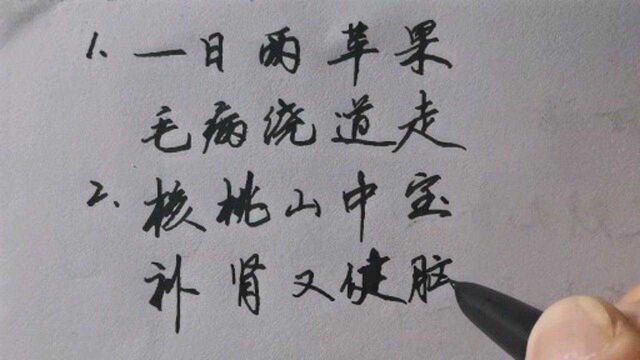 1. 一日两苹果
毛病绕道走
2. 核桃山中宝
补肾又健脑